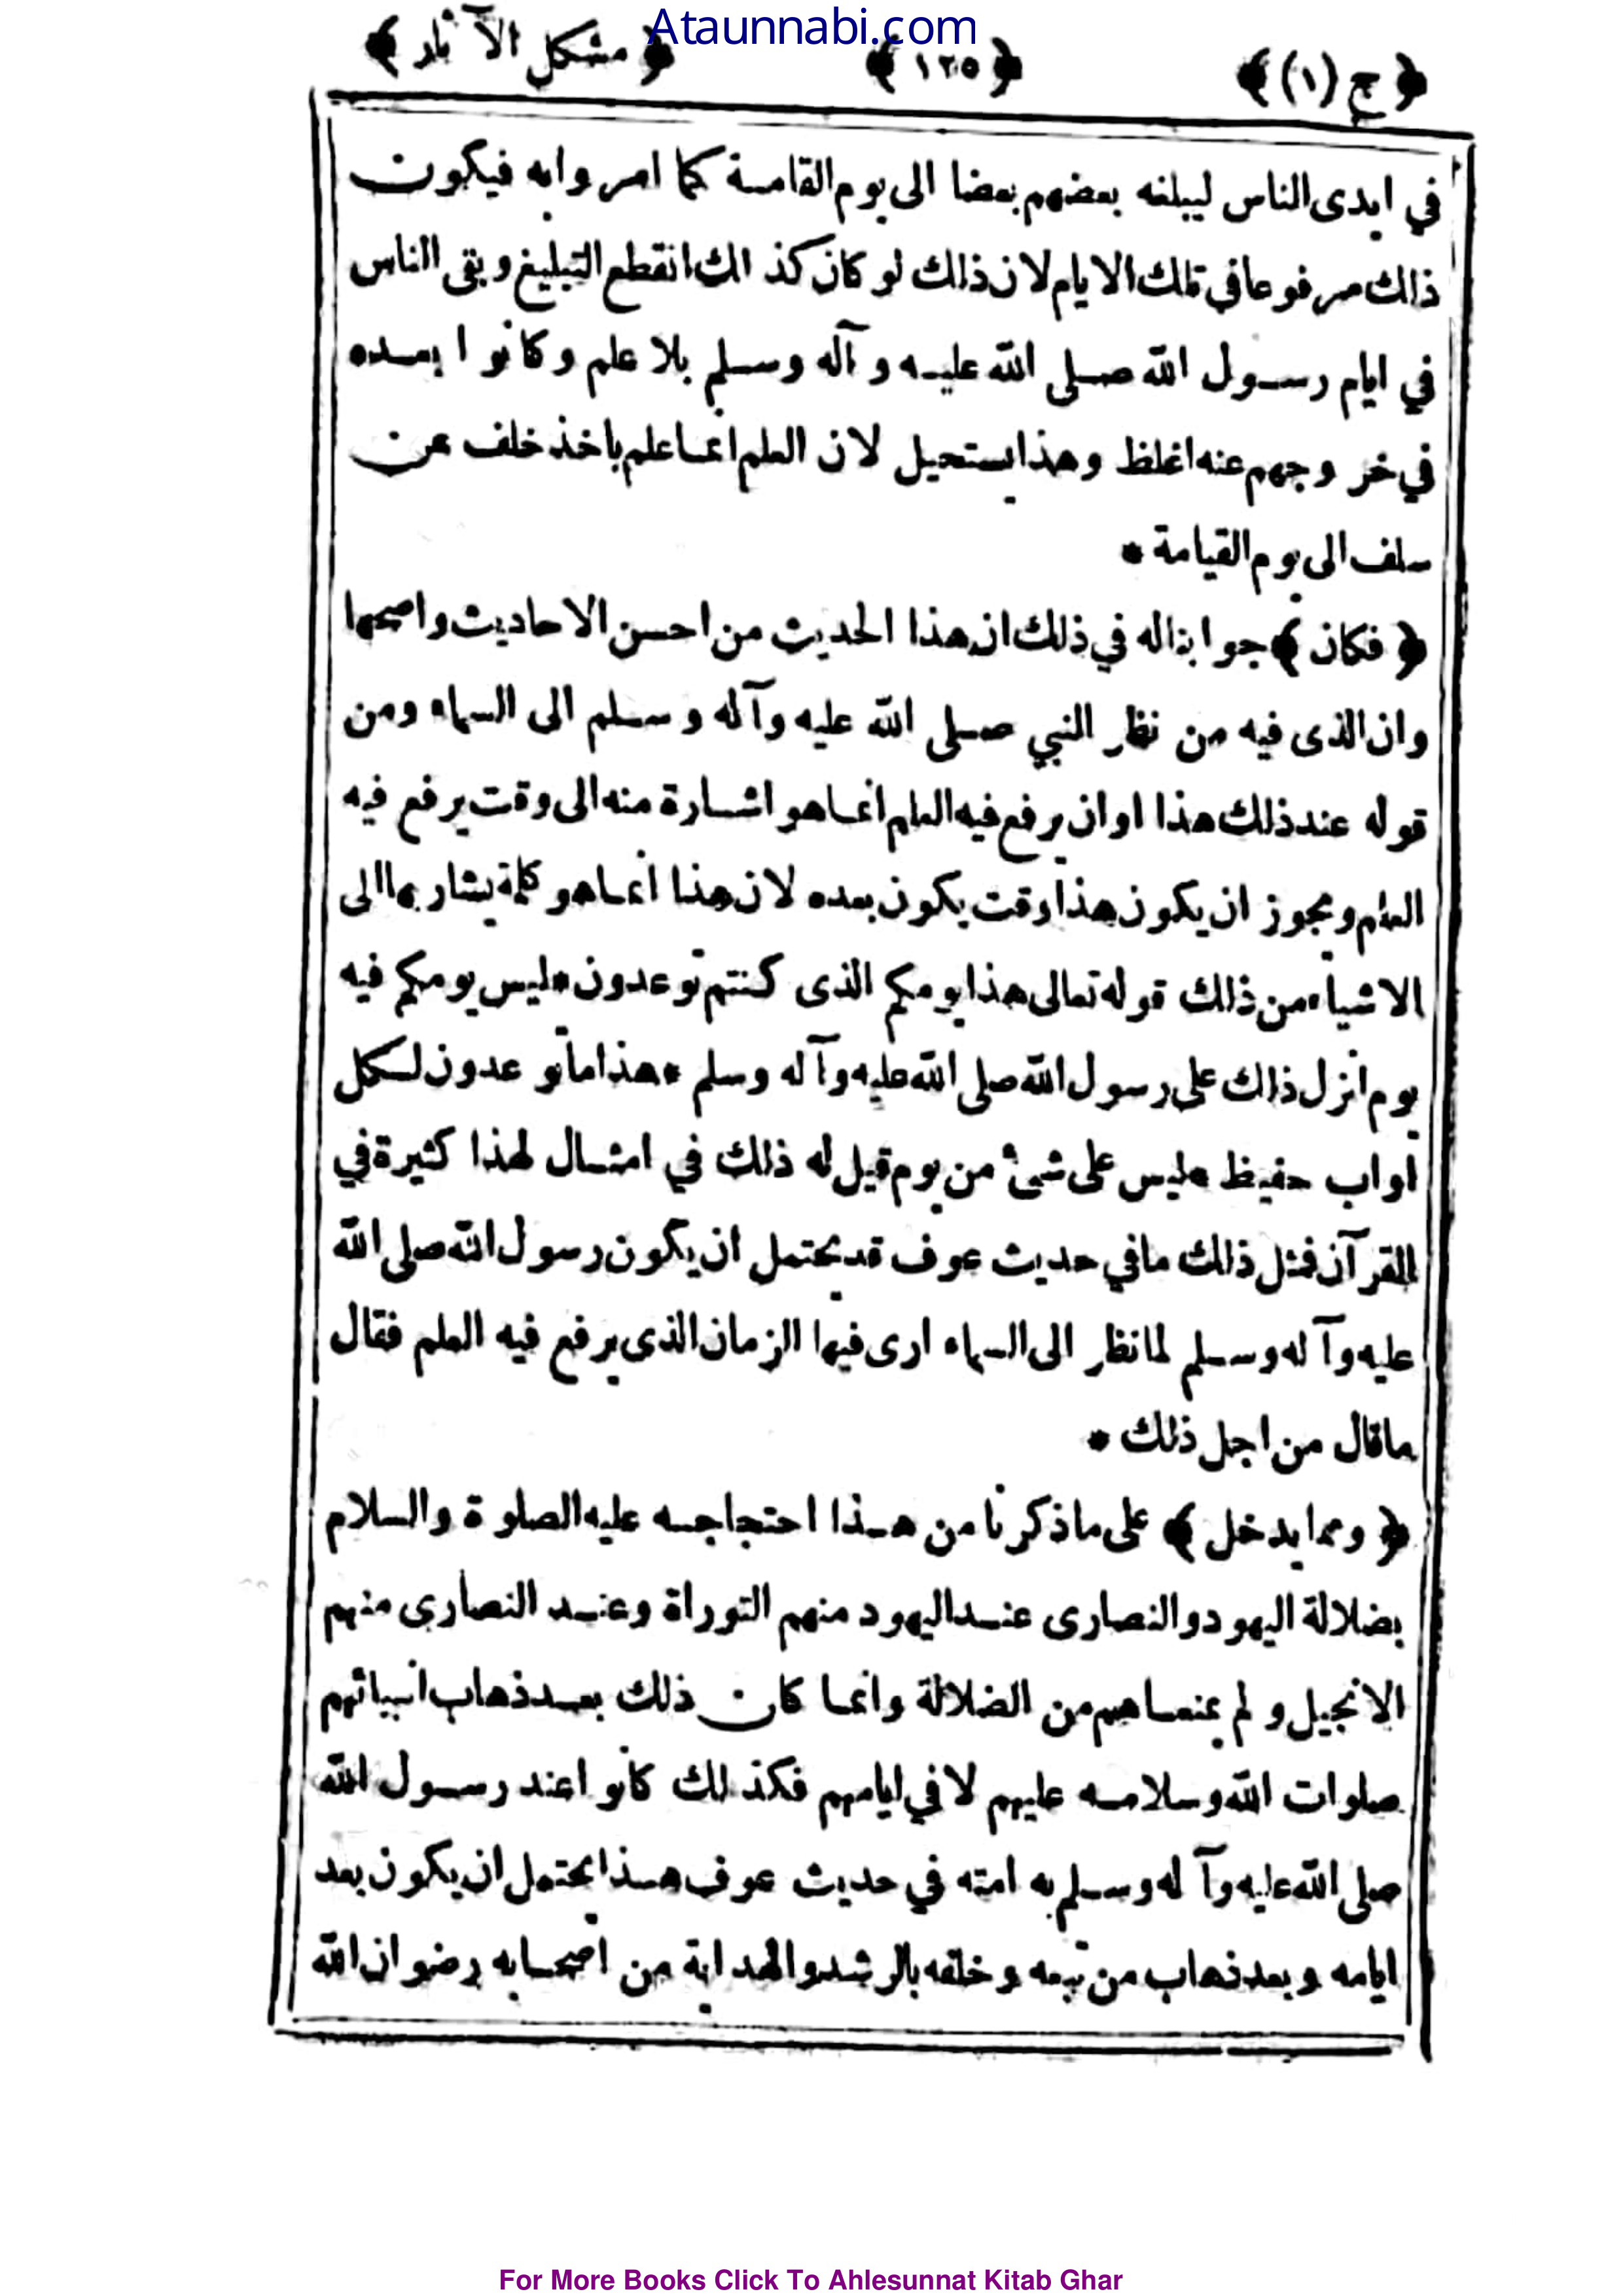 Ataunnabi.com
﴿ ج (١) ﴾ ﴿ ١٢٥ ﴾ ﴿ مشكل الآثار ﴾
في ايدى الناس ليبلغه بعضهم بعضا الى يوم القامة كما امروا به فيكون
ذلك مرفوعا في تلك الايام لان ذلك لو كان كذلك انقطع التبليغ وبقى الناس
في ايام رسول الله صلى الله عليه وآله وسلم بلا علم وكانوا بعده
في خروجهم عنه اغلظ وهذا يستحيل لان العلم انما علم باخذ خلف عن
سلف الى يوم القيامة *
﴿ فكان ﴾ جوابنا له في ذلك ان هذا الحديث من احسن الاحاديث واصحها
وان الذى فيه من نظر النبي صلى الله عليه وآله وسلم الى السماء ومن
قوله عند ذلك هذا اوان يرفع فيه العلم انما هو اشارة منه الى وقت يرفع فيه
العلم ويجوز ان يكون هذا وقت يكون بعده لان هذا انما هو كلمة يشار بها الى
الاشياء من ذلك قوله تعالى هذا يومكم الذى كنتم توعدون * ليس يومكم فيه
يوم انزل ذلك على رسول الله صلى الله عليه وآله وسلم * هذا ما توعدون لكل
اواب حفيظ * ليس على شئ من يوم قيل له ذلك في امثال لهذا كثيرة في
القرآن فمثل ذلك ما في حديث عوف قد يحتمل ان يكون رسول الله صلى الله
عليه وآله وسلم لما نظر الى السماء ارى فيها الزمان الذى يرفع فيه العلم فقال
ما قال من اجل ذلك *
﴿ ومما يدخل ﴾ على ما ذكرنا من هذا احتجاجه عليه الصلوة والسلام
بضلالة اليهود والنصارى عند اليهود منهم التوراة وعند النصارى منهم
الانجيل ولم يمنعاهم من الضلالة وانما كان ذلك بعد ذهاب انبيائهم
صلوات الله وسلامه عليهم لا في ايامهم فكذلك كانوا عند رسول الله
صلى الله عليه وآله وسلم به امته في حديث عوف هذا يحتمل ان يكون بعد
ايامه وبعد ذهاب من تبعه وخلفه بالرشد والهداية من اصحابه رضوان الله
For More Books Click To Ahlesunnat Kitab Ghar